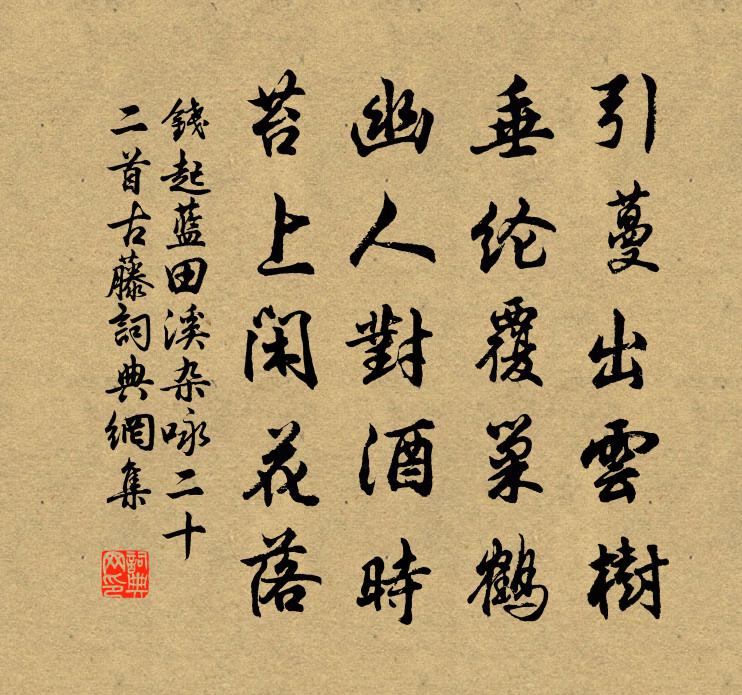 引蔓出雲樹
垂纶覆巢鶴
幽人對酒時
苔上闲花落
錢起藍田溪杂咏二十
二首古藤詞典網集
詞典网印